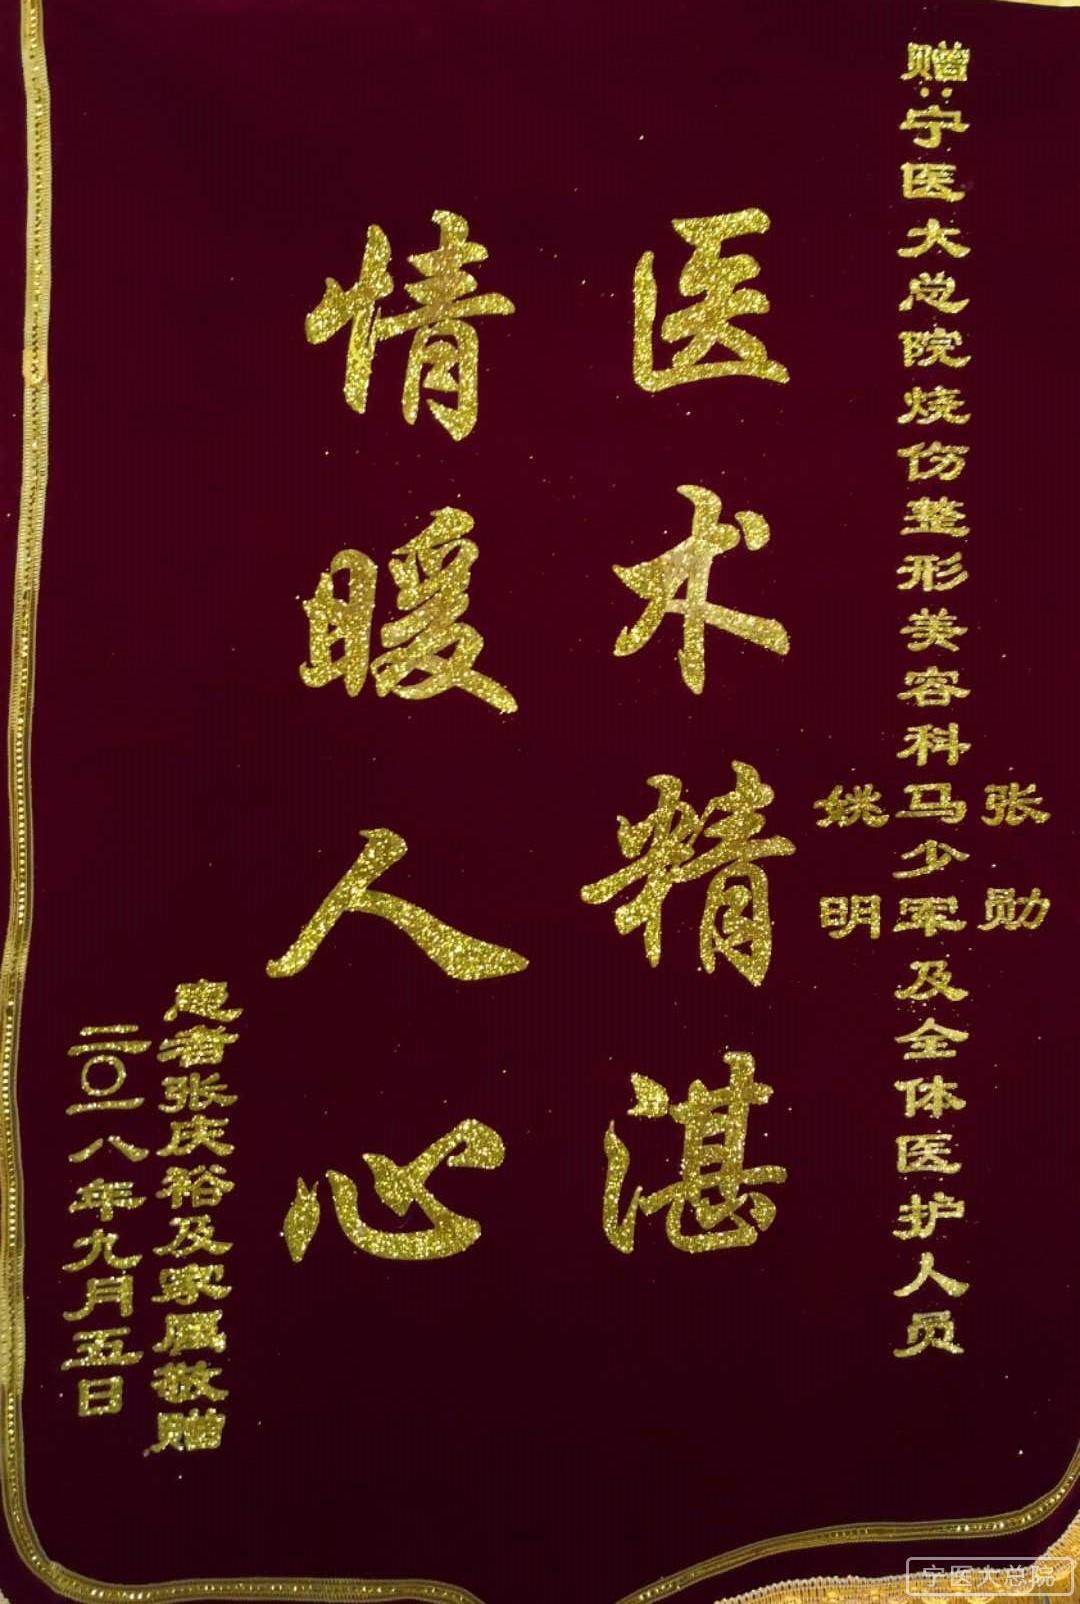 赠:宁医大总院烧伤整形美容科马少军及全体医护人员
张勋
姚明
医术精湛
情暖人心
患者张庆裕及家属敬赠
二〇一八年九月五日
宁医大总院